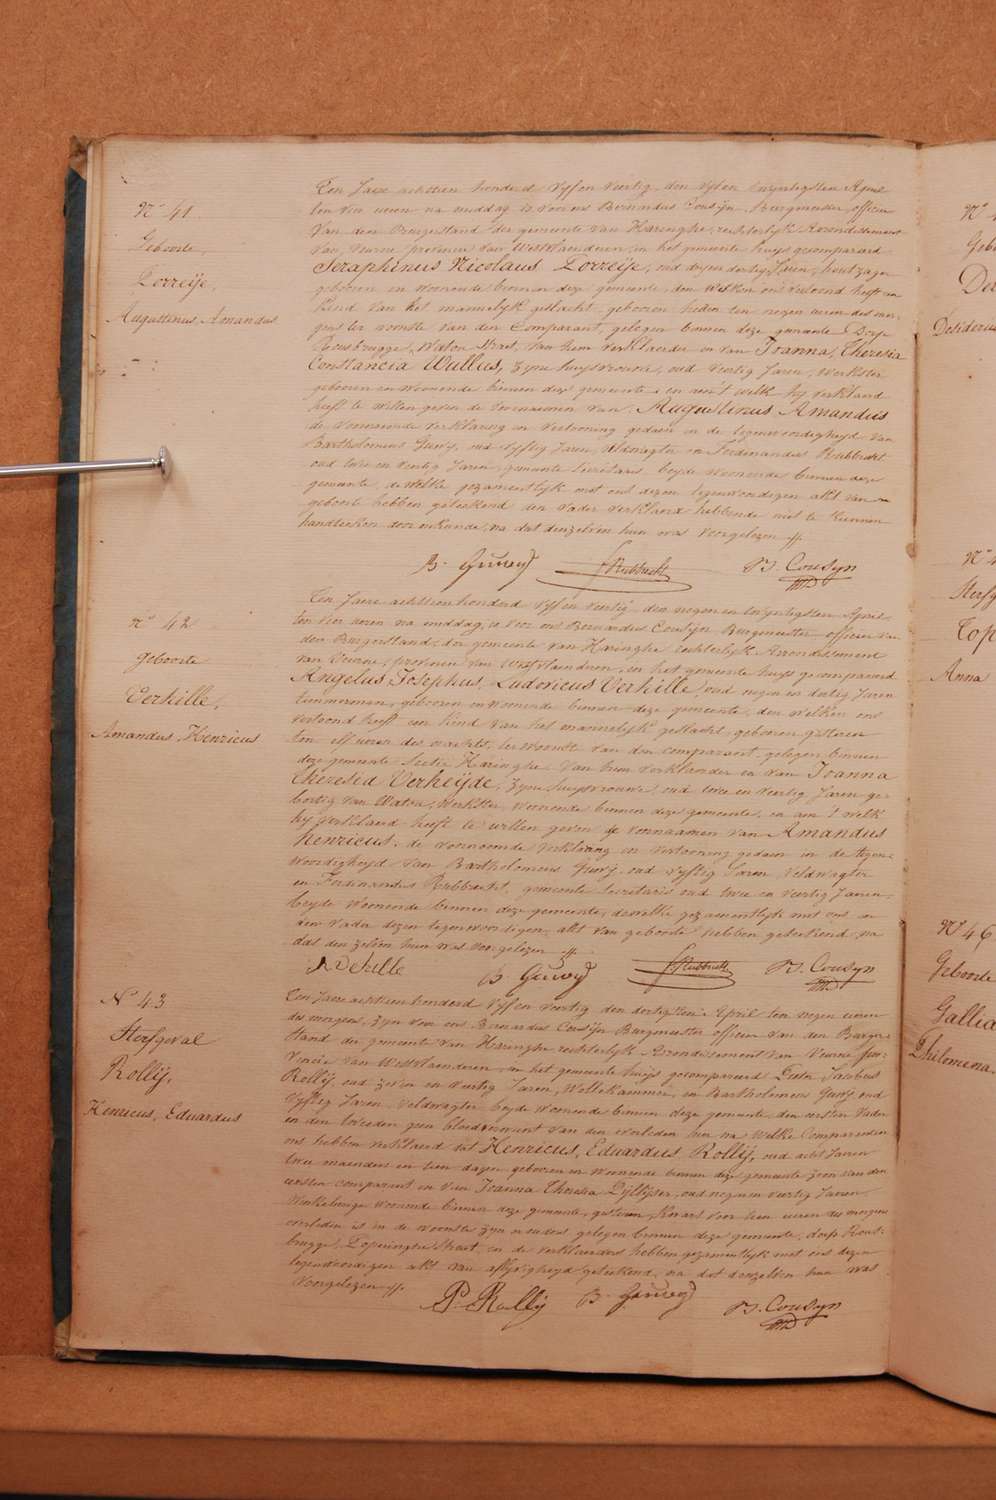 N° 41.
Geboorte
Torreije,
Augustinus, Amandus
Ten Jaere achttien honderd vyf en veertig den vyfen twyntigsten April
ten vier uren na middag is voor ons Bernardus Cousyn, Burgmeester officier
van den Burgerstand der gemeente van Haringhe, rechterlyk Arrondissement
van Veurne, provincie van Westvlaenderen, in het gemeente huys gecompareerd
Seraphinus Nicolaus Torreije, oud dryen dertig Jaren, houtzager
geboren en woonende binnen deze gemeente, den welken ons vertoond heeft een
kind van het mannelyk geslacht geboren heden ten negen uren des mor-
gens ter woonste van den Comparant, gelegen binnen deze gemeente Dorp
Rousbrugge, Waton Straet, van hem verklaerder en van Joanna, Theresia
Constancia Wullus, zyne huysvrouwe, oud veertig Jaren, Werkster
geboren en woonende binnen deze gemeente en aen 't welk hy verklaerd
heeft te willen geven de voornaemen van Augustinus Amandus
de voornoemde verklaring en vertooning gedaen in de tegenwoordigheyd van
Bartholomeus Guwy, oud vyftig Jaren, Veldwagter en Ferdinandus Rubbrecht
oud twee en veertig Jaren, gemeente Secretaris beyde woonende binnen deze
gemeente, dewelke gezamentlyk met ons dezen tegenwoordigen akt van
geboorte hebben geteekend den vader verklaerd hebbende niet te kunnen
handteeken door onkunde, na dat denzelven hun was voorgelezen
B. Guwy F Rubbrecht B. Cousyn
N° 42
geboorte
Verhille,
Amandus, Henricus
Ten Jaere achttien honderd vyf en veertig den negen en twyntigsten April
ten vier uren na middag, is voor ons Bernardus Cousyn Burgmeester officier van
den Burgerstand der gemeente van Haringhe rechterlyk Arrondissement
van Veurne, provincie van Westvlaenderen, in het gemeente huys gecompareerd
Angelus Josephus, Ludovicus Verhille, oud negen en dertig Jaren
timmerman, geboren en woonende binnen deze gemeente, den welken ons
vertoond heeft een kind van het mannelyk geslacht geboren gisteren
ten elf uren des nachts, ter woonste van den comparant gelegen binnen
deze gemeente Sectie Haringhe van hem verklaerder en van Joanna
Theresia Verheyde, zyne huysvrouwe, oud twee en veertig Jaren ge-
boortig van Watou, Werkster, woonende binnen deze gemeente, en aen 't welk
hy verklaerd heeft te willen geven de voornaamen van Amandus
henricus, de voornoemde verklaring en vertooning gedaen in de tegen-
woordigheyd van Bartholomeus Guwy oud vyftig Jaren, Veldwagter
en Ferdinandus Rubbrecht, gemeente Secretaris oud twee en veertig Jaren
beyde woonende binnen deze gemeente, dewelke gezamentlyk met ons en
den vader dezen tegenwoordigen akt van geboorte hebben geteekend, na
dat den zelven hun was voorgelezen
A Vehille B Guwy F Rubbrecht B. Cousyn
N° 43
Sterfgeval
Rollij,
Henricus, Eduardus
Ten Jaere achttien honderd vyf en veertig den dertigsten April ten negen uren
des morgens, zyn voor ons Bernardus Cousyn Burgmeester officier van den Burger-
Stand der gemeente van Haringhe rechterlyk Arrondissement van Veurne pro-
vincie van Westvlaenderen, in het gemeente huys gecompareerd Pieter Jacobus
Rollij, oud zeven en veertig Jaren, Wollekammer, en Bartholomeus Guwy oud
vyftig Jaren, Veldwagter beyde woonende binnen deze gemeente den eersten vader
en den tweeden geen bloedverwant van den overleden hier na welke Comparanten
ons hebben verklaerd dat Henricus, Eduardus Rollij, oud acht Jaren
twee maenden en tien dagen geboren en woonende binnen deze gemeente zoon van den
eersten comparant en van Joanna Theresia Dyllyser, oud negen en veertig Jaren
Winkelierige woonende binnen deze gemeente, gisteren, kwart voor tien uren des morgens
overleden is in de woonste zyn n ouders gelegen binnen deze gemeente, dorp Rous-
brugge, Poperinghe Straet, en de verklaerders hebben gezamentlyk met ons dezen
tegenwoordigen akt van aflyvigheyd geteekend, na dat denzelven hun was
voorgelezen
P. Rollij B. Guwy B. Cousyn
N°
Gebo
De
Desiderius
N° 4
Sterfg
Top
Anna
N° 46
Geboorte
Gallia
Philomena